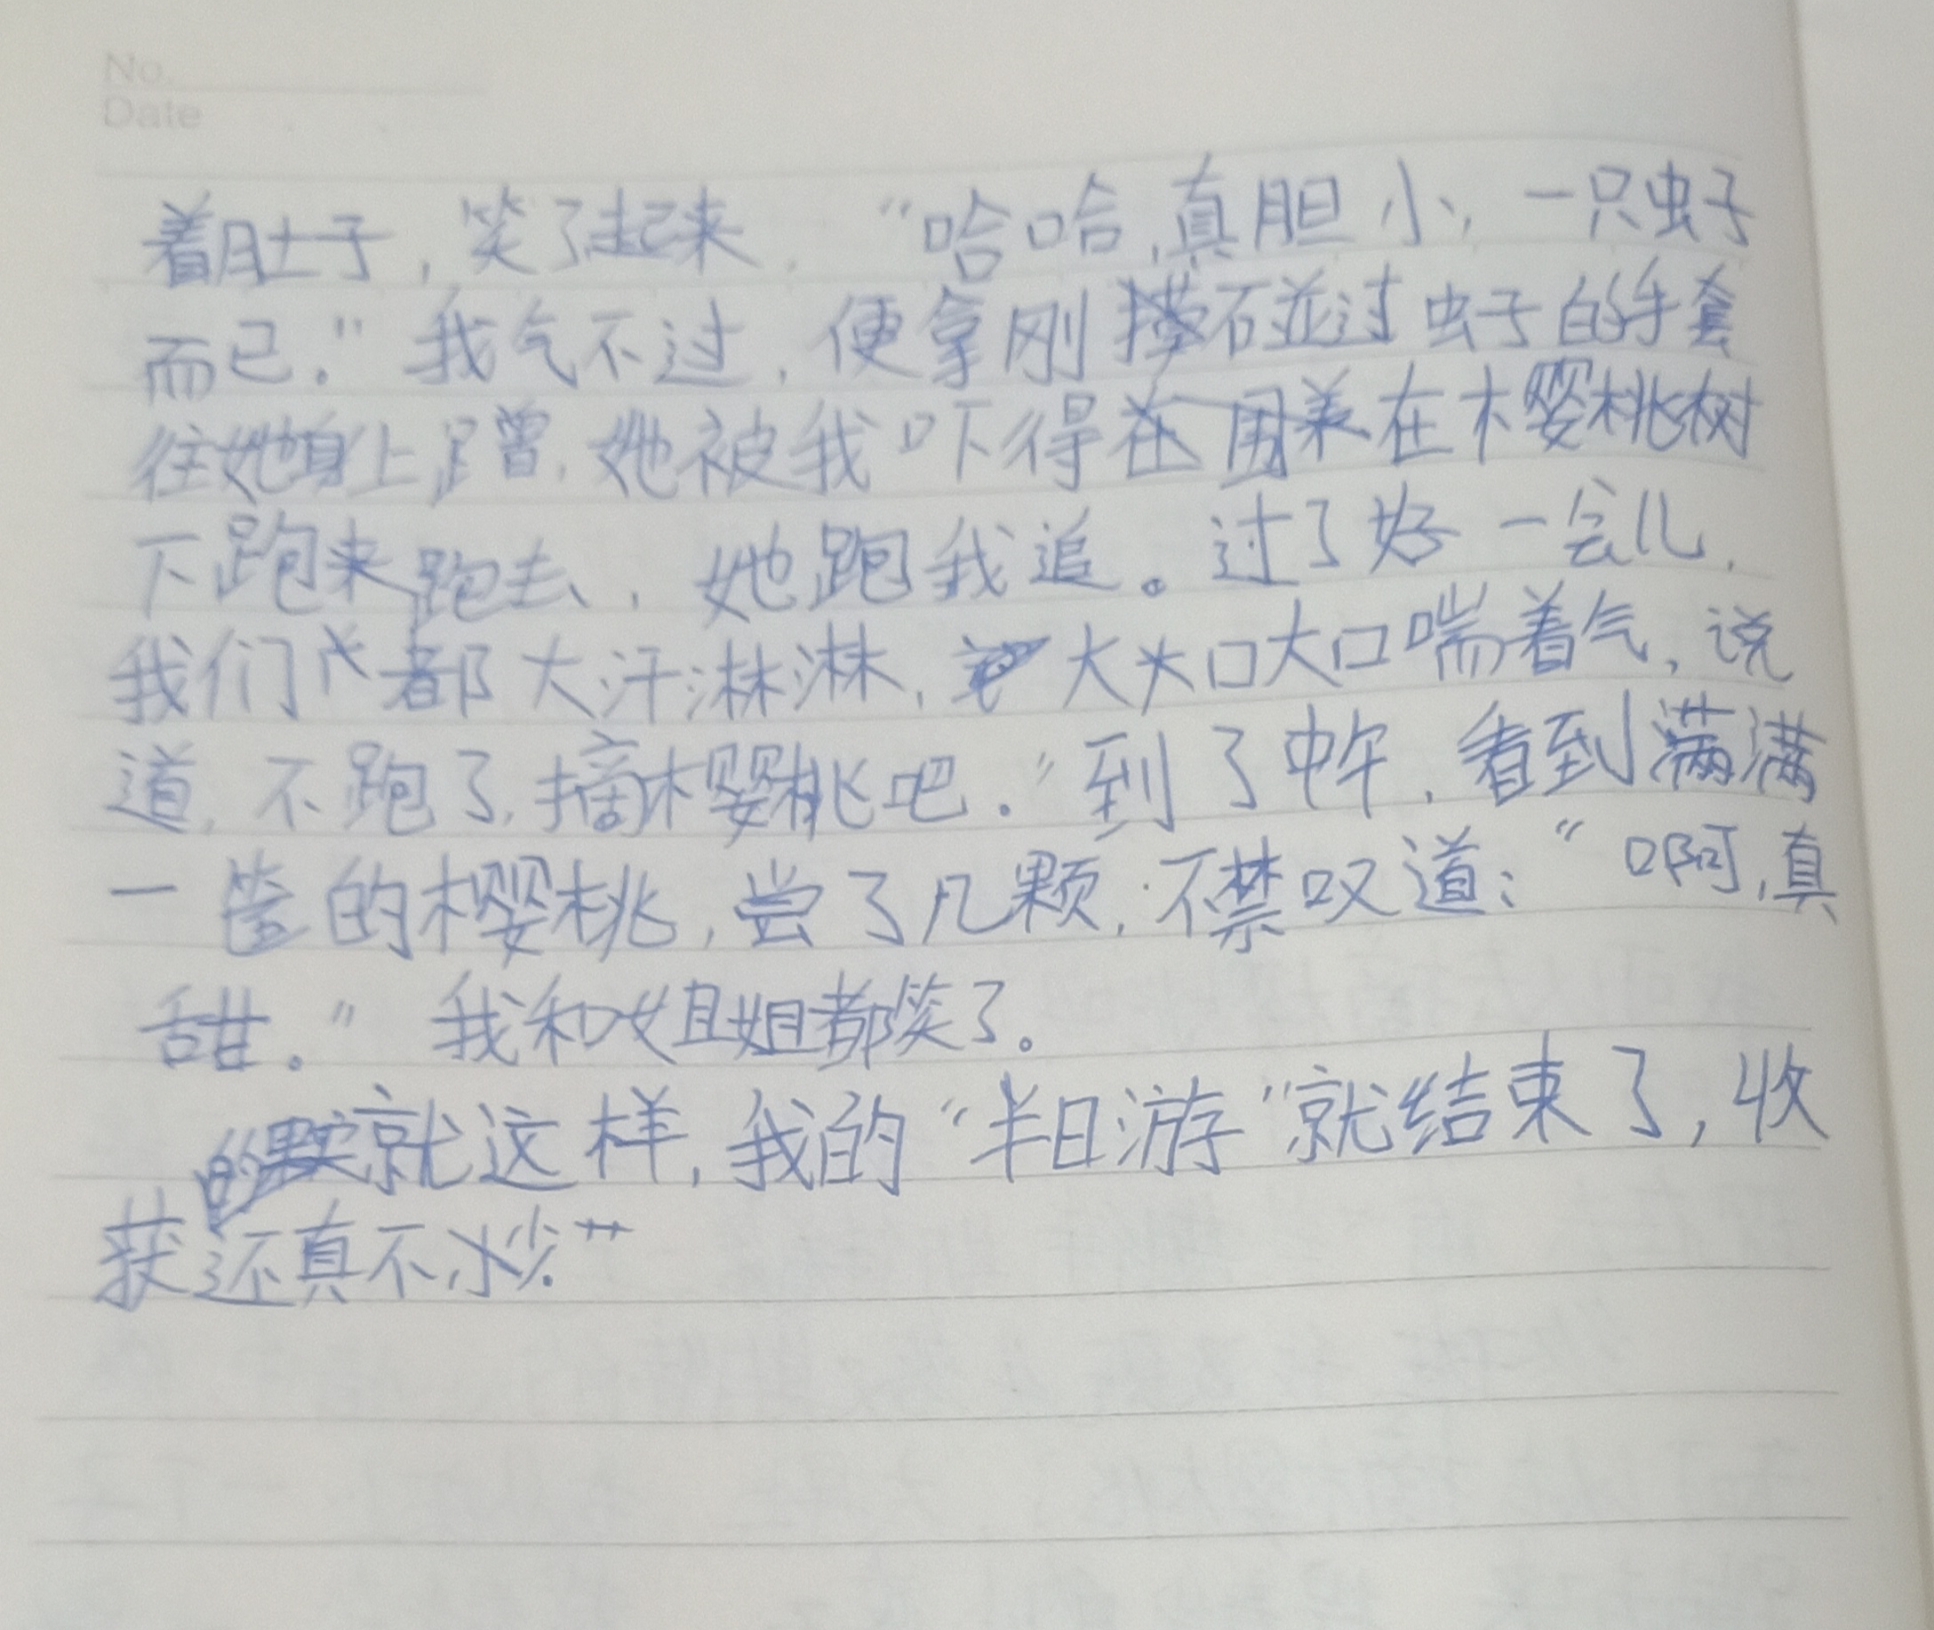 No.
Date
着肚子，笑了起来，“哈哈，真胆小，一只虫子
而已.”我气不过，便拿刚碰过虫子的手套
往她身上蹭，她被我吓得在樱桃树
下跑来跑去，她跑我追。过了好一会儿，
我们都大汗淋淋，大口大口喘着气，说
道，不跑了，摘樱桃吧.”到了中午，看到满满
一筐的樱桃，尝了几颗，不禁叹道：“啊，真
甜。”我和姐姐都笑了。
就这样，我的“半日游”就结束了，收
获还真不少.